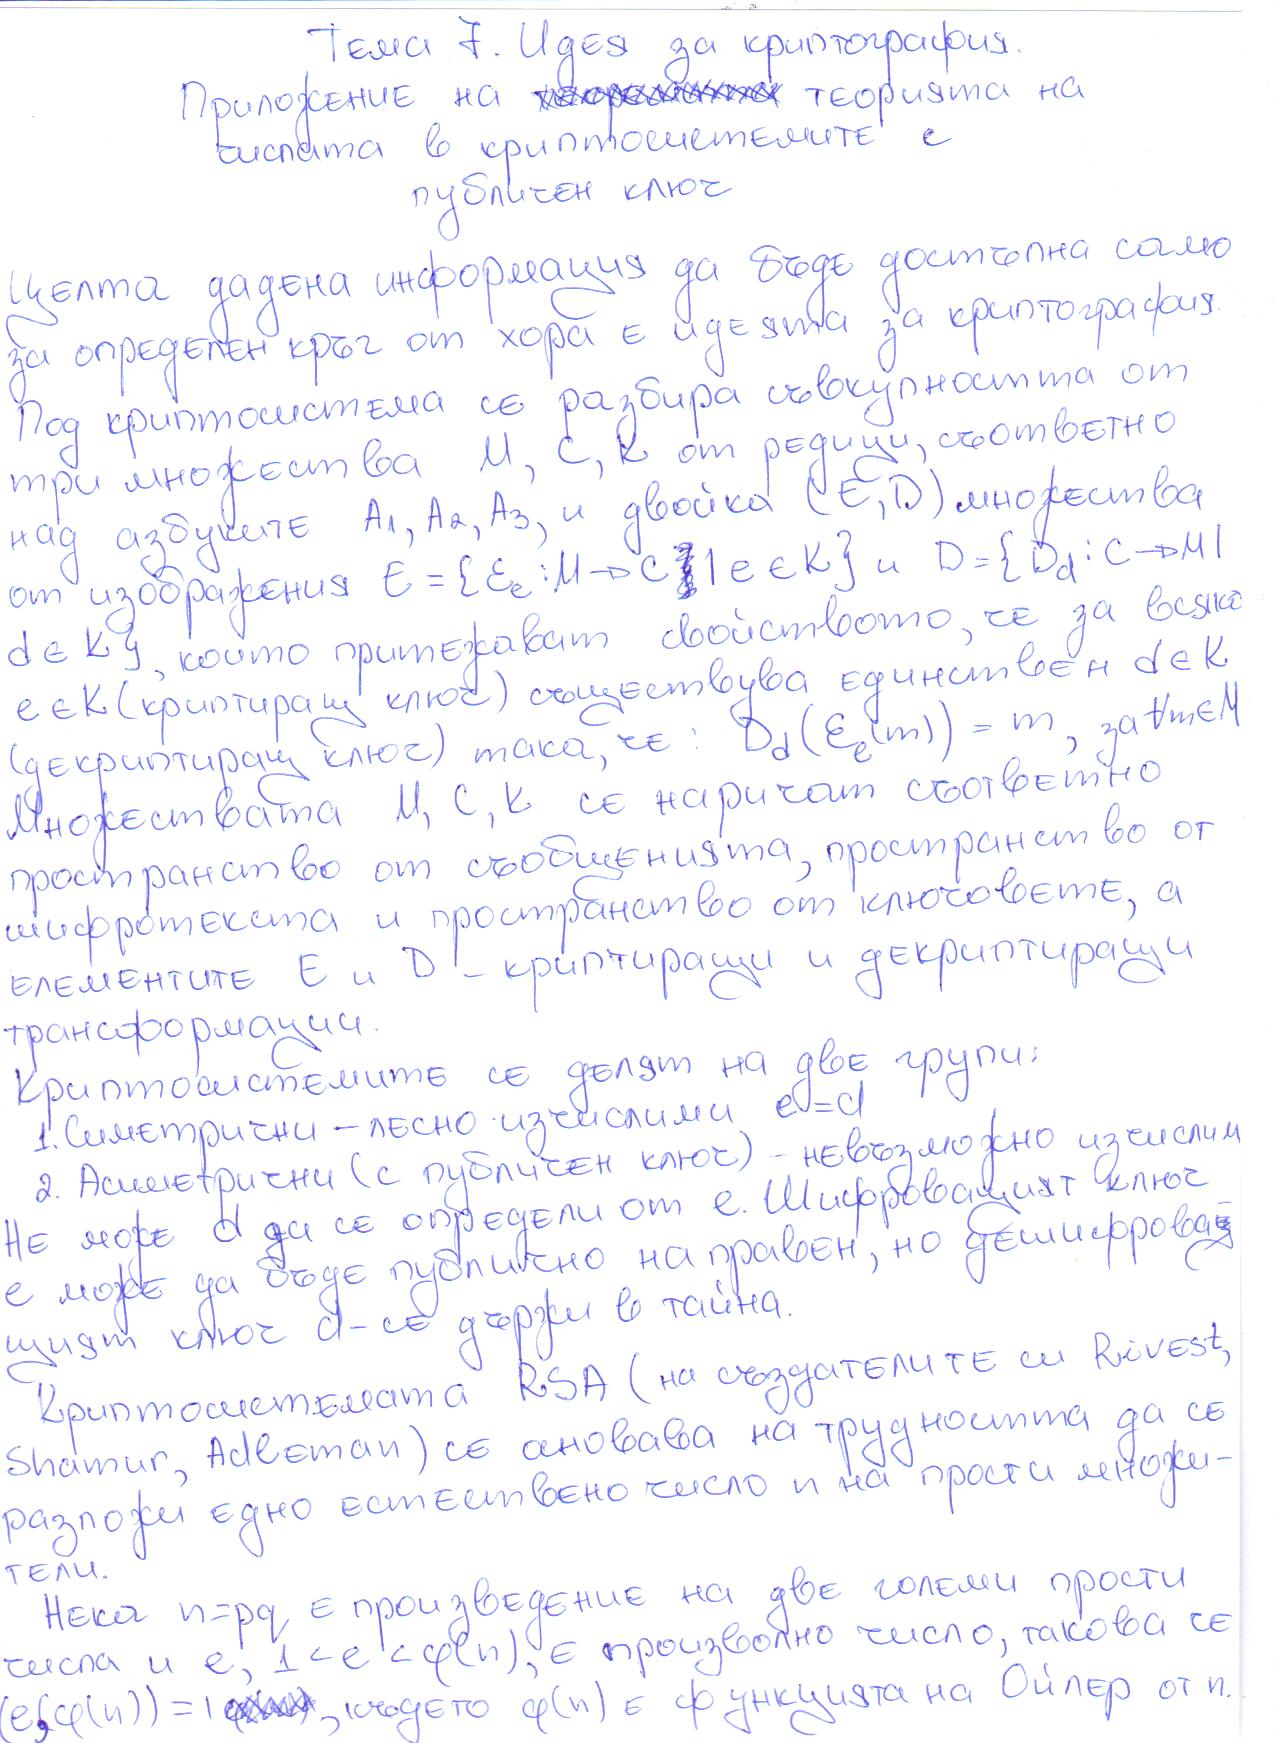 Тема 7. Идея за криптография.
Приложение на теорията на
числата в криптосистемите с
публичен ключ
Целта дадена информация да бъде достъпна само
за определен кръг от хора е идеята за криптография.
Под криптосистема се разбира съвкупността от
три множества M, C, K от редици, съответно
над азбуките A1, A2, A3, и двойка (E, D) множества
от изображения E = {Ee : M → C | e ∈ K} и D = {Dd : C → M |
d ∈ K}, които притежават свойството, че за всяко
e ∈ K (криптиращ ключ) съществува единствен d ∈ K
(декриптиращ ключ) така, че: Dd(Ee(m)) = m, за ∀m ∈ M
Множествата M, C, K се наричат съответно
пространство от съобщенията, пространство от
шифротекста и пространство от ключовете, а
елементите E и D – криптиращи и декриптиращи
трансформации.
Криптосистемите се делят на две групи:
1. Симетрични – лесно изчислими e = d
2. Асиметрични (с публичен ключ) – невъзможно изчислим
Не може d да се определи от e. Шифроващият ключ
e може да бъде публично направен, но дешифрова
щият ключ d – се държи в тайна.
Криптосистемата RSA (на създателите си Rivest,
Shamir, Adleman) се основава на трудността да се
разложи едно естествено число n на прости множи-
тели.
Нека n=pq е произведение на две големи прости
числа и e, 1 < e < φ(n), е произволно число, такова че
(e, φ(n)) = 1, където φ(n) е функцията на Ойлер от n.